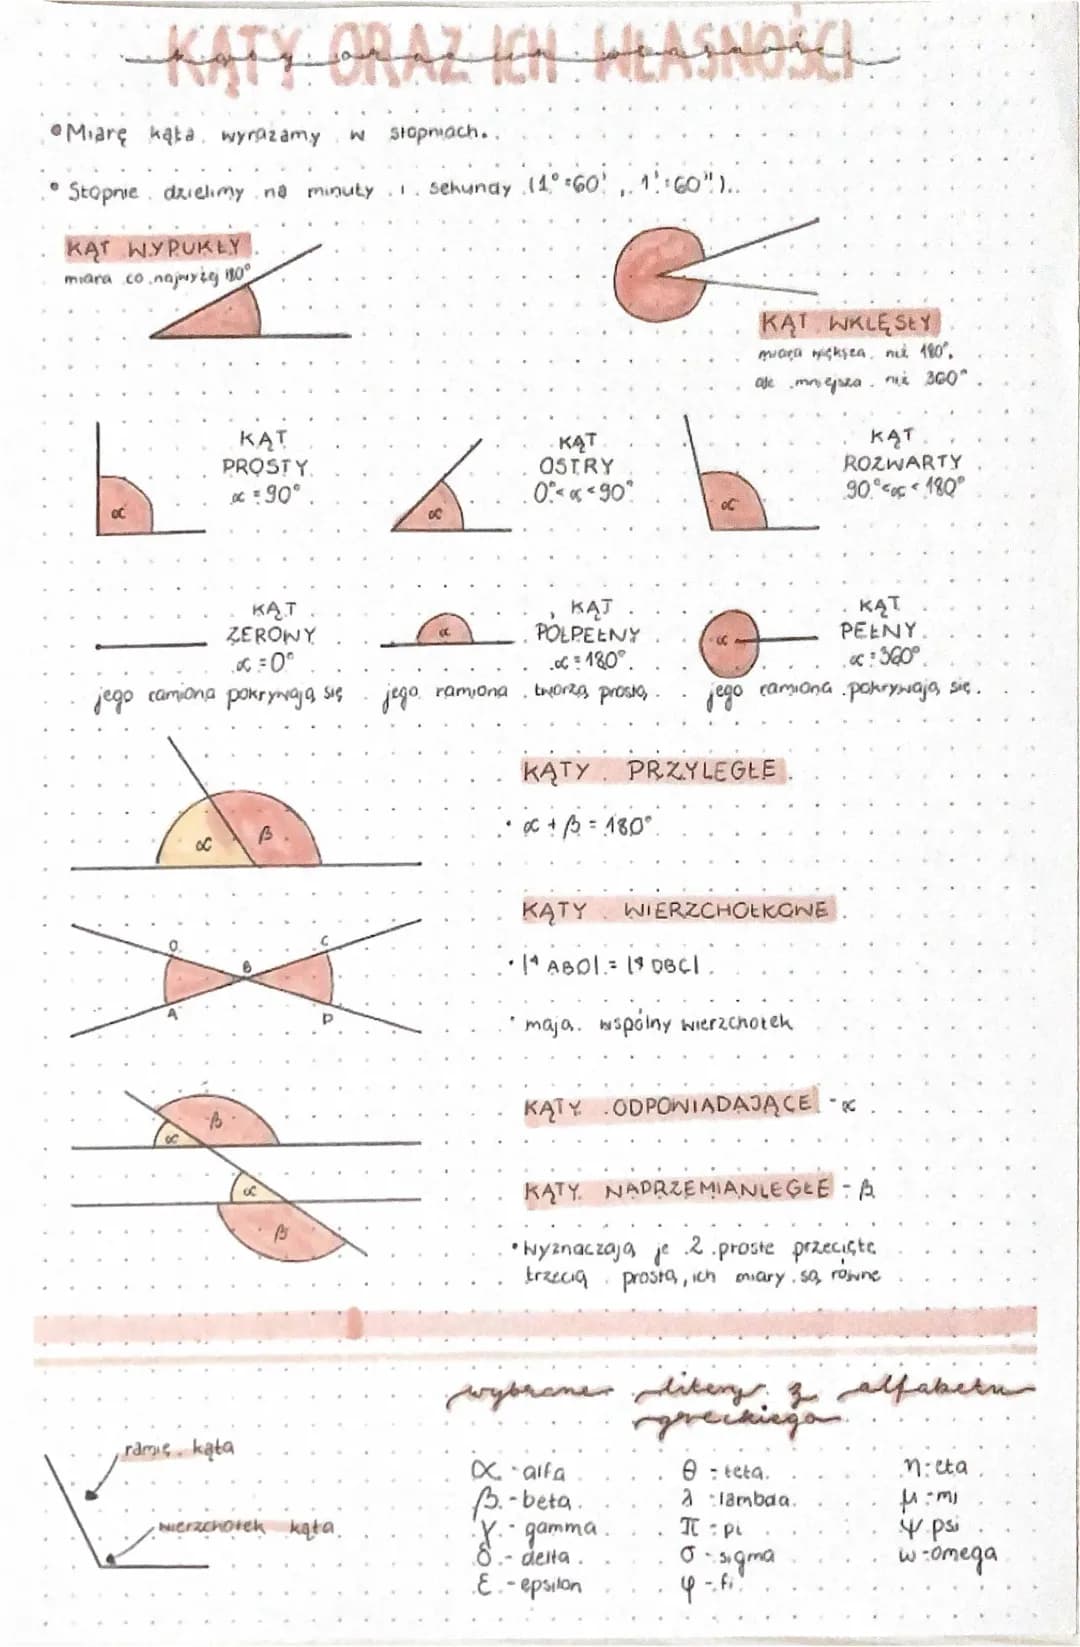 KĄTY ORAZ ICH WŁASNOŚCI
kąty oraz ich własności
• Miarę kąta wyrażamy w stopniach.
• Stopnie dzielimy na minuty i sekundy (1°=60', 1'=60").
KĄT WYPUKŁY
miara co najwyżej 180°
KĄT WKLĘSŁY
miara większa niż 180°,
ale mniejsza niż 360°
KĄT
PROSTY
α = 90°
α
KĄT
OSTRY
0°<α<90°
α
KĄT
ROZWARTY
90°<α<180°
α
KĄT
ZEROWY
α = 0°
jego ramiona pokrywają się
KĄT
PÓŁPEŁNY
α = 180°
α
jego ramiona tworzą prostą
KĄT
PEŁNY
α = 360°
α
jego ramiona pokrywają się
KĄTY PRZYLEGŁE
• α + β = 180°
α β
KĄTY WIERZCHOŁKOWE
• |∢ ABO| = |∢ DBC|
• mają wspólny wierzchołek
O C
B
A D
KĄTY ODPOWIADAJĄCE - α
KĄTY NADRZEMIANLEGŁE - β
• wyznaczają je 2 proste przecięte
trzecią prostą, ich miary są równe
β
α
α
β
wybrane litery z alfabetu
greckiego
ramię kąta
wierzchołek kąta
α - alfa
β - beta
γ - gamma
δ - delta
ε - epsilon
θ - teta
λ - lambda
π - pi
σ - sigma
φ - fi
η - eta
μ - mi
ψ psi
ω - omega